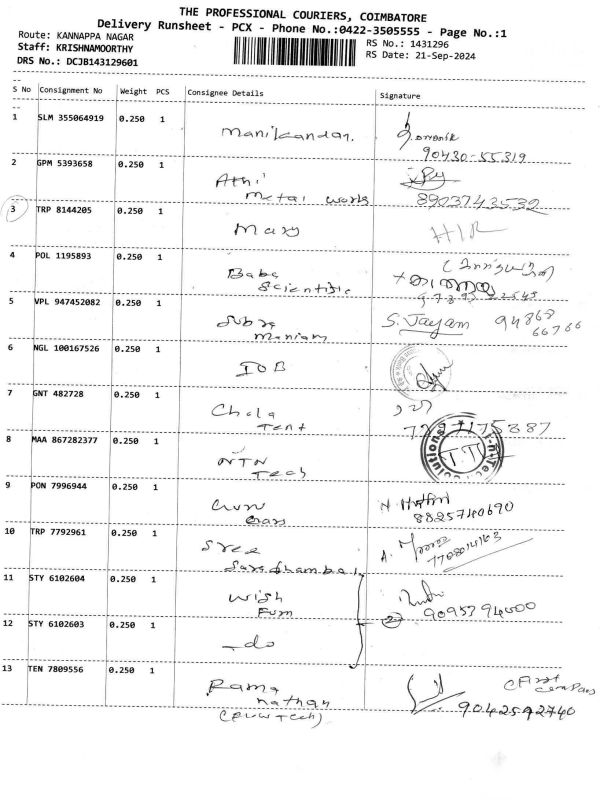 THE PROFESSIONAL COURIERS, COIMBATORE
Delivery Runsheet - PCX - Phone No.:0422-3505555 - Page No.:1
Route: KANNAPPA NAGAR
RS No.: 1431296
Staff: KRISHNAMOORTHY
RS Date: 21-Sep-2024
DRS No.: DCJB143129601
S No Consignment No Weight PCS Consignee Details Signature
1 SLM 355064919 0.250 1
Manikandan.
90430-55319
2 GPM 5393658 0.250 1
Athi
metal works 8903743532
3 TRP 8144205 0.250 1
Mary
4 POL 1195893 0.250 1
Baba
Scientific
5 VPL 947452082 0.250 1
Subra S. Jayam 94868
Maniam 66766
6 NGL 100167526 0.250 1
IOB
7 GNT 482728 0.250 1
Chola
Tent
8 MAA 867282377 0.250 1
NTN
Tech
9 PON 7996944 0.250 1
8825740690
10 TRP 7792961 0.250 1
Sree
11 STY 6102604 0.250 1
Wish
Furn 9095394000
12 STY 6102603 0.250 1
2
do
13 TEN 7809556 0.250 1
Rama
nathan 9042592740